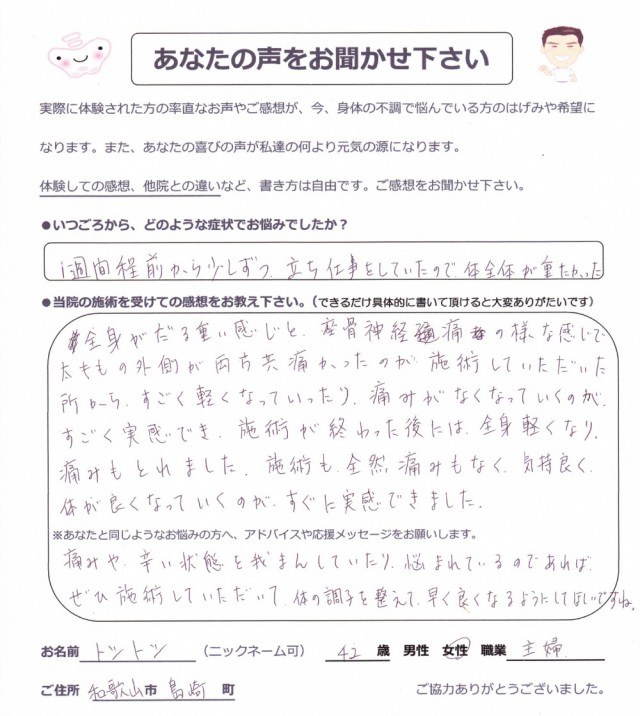 あなたの声をお聞かせ下さい
実際に体験された方の率直なお声やご感想が、今、身体の不調で悩んでいる方のはげみや希望に
なります。また、あなたの喜びの声が私達の何より元気の源になります。
体験しての感想、他院との違いなど、書き方は自由です。ご感想をお聞かせ下さい。
●いつごろから、どのような症状でお悩みでしたか？
1週間程前から少しずつ、立ち仕事をしていたので、体全体が重たかった
●当院の施術を受けての感想をお教え下さい。（できるだけ具体的に書いて頂けると大変ありがたいです）
全身がだる重い感じと、座骨神経痛の様な感じで
太ももの外側が両方共痛かったのが、施術していただいた
所から、すごく軽くなっていったり、痛みがなくなっていくのが、
すごく実感でき、施術が終わった後には、全身軽くなり、
痛みもとれました。施術も、全然痛みもなく、気持良く、
体が良くなっていくのが、すぐに実感できました。
※あなたと同じようなお悩みの方へ、アドバイスや応援メッセージをお願いします。
痛みや、辛い状態を我まんしていたり、悩まれているのであれば、
ぜひ施術していただいて、体の調子を整えて、早く良くなるようにしてほしいですね。
お名前 トントン （ニックネーム可） 42 歳 男性 女性 職業 主婦
ご住所 和歌山市 島崎 町 ご協力ありがとうございました。